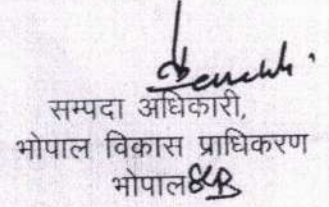 सम्पदा अधिकारी,
भोपाल विकास प्राधिकरण
भोपाल